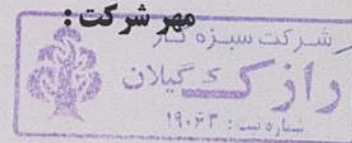 مهر شرکت :
شرکت سبزه کار
رازک گیلان
شماره ثبت : ۱۹۰۶۳